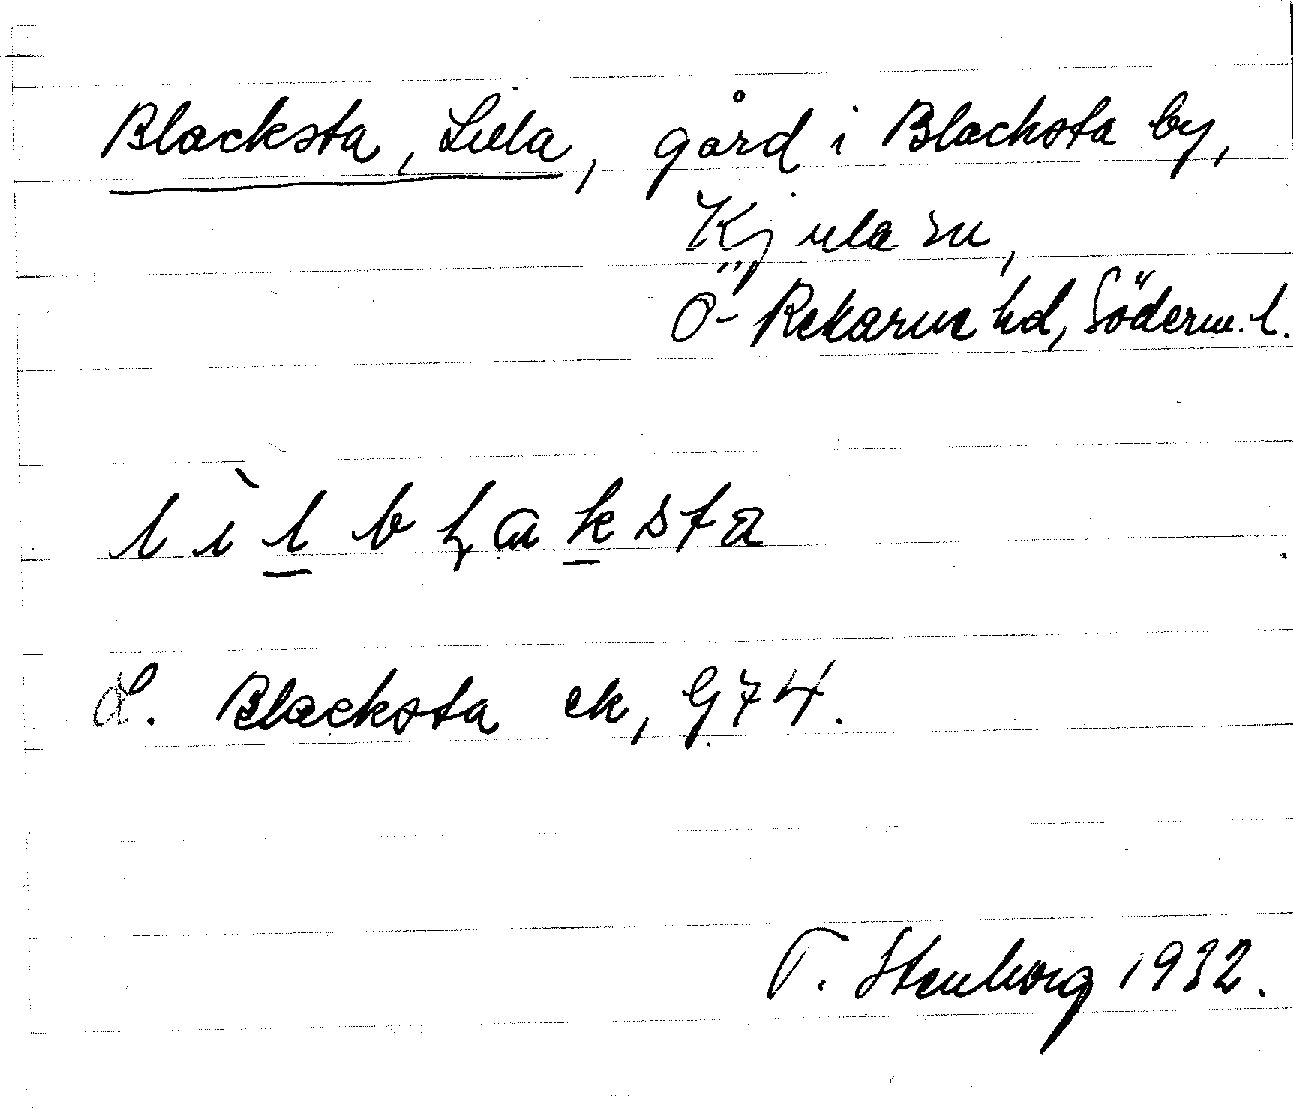 Blacksta, Lilla, gård i Blacksta by,
Kjula sn,
Ö-Rekarne hd, Söderm. l.
lìlbɽaksta
L. Blacksta ek, G74.
T. Stenborg 1932.